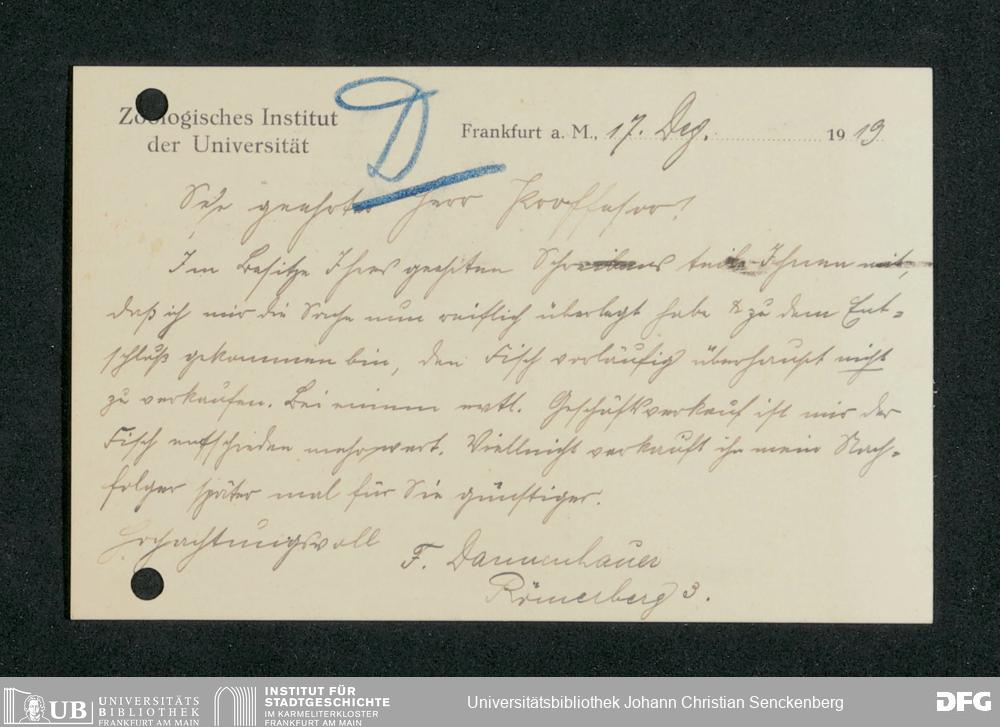 Zoologisches Institut
der Universität
D
Frankfurt a. M., 17. Dez. 1919
Sehr geehrter Herr Proffessor!
Im Besitze Ihres geehrten Schreibens teile Ihnen mit,
daß ich mir die Sache nun reiflich überlegt habe & zu dem Ent-
schluß gekommen bin, den Fisch vorläufig überhaupt nicht
zu verkaufen. Bei einem evtl. Geschäftsverkauf ist mir der
Fisch entschieden mehr wert. Vielleicht verkauft ihn mein Nach-
folger später mal für Sie günstiger.
Hochachtungsvoll
F. Dannenhauer
Römerberg 3.
UB UNIVERSITÄTS
BIBLIOTHEK
FRANKFURT AM MAIN
INSTITUT FÜR
STADTGESCHICHTE
IM KARMELITERKLOSTER
FRANKFURT AM MAIN
Universitätsbibliothek Johann Christian Senckenberg
DFG